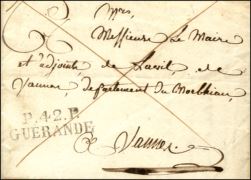 Messieurs Le Maire
et adjoints de la ville de
Vannes, département du Morbihan,
P.42.P.
GUERANDE
à Vannes